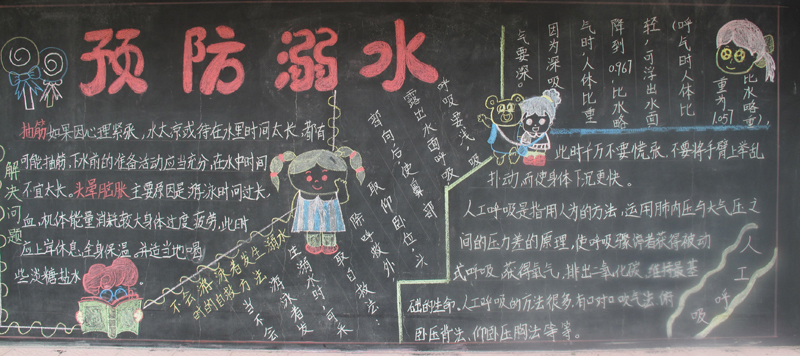 预防溺水
解决问题
抽筋如果因心理紧张，水太凉或待在水里时间太长，都有
可能抽筋，下水前的准备活动应当充分，在水中时间
不宜太长。头晕脑胀主要原因是游泳时间过长，
血，机体能量消耗较大身体过度疲劳，此时
应上岸休息，全身保温。并适当地喝
些淡糖盐水
不会游泳者发生溺水
时的自救方法
当不会
游泳者发
生溺水时，可采
取自救法：
除呼救外，
取仰卧位，头
部向后使鼻部
露出水面呼吸
呼吸要浅，吸
气要深。
因为深吸
气时，人体比重
降到0.967，比水略
轻，可浮出水面
（呼气时人体比
重为1.057
比水略重）
此时千万不要慌张，不要将手臂上举乱
扑动，而使身体下沉更快。
人工呼吸是指用人为的方法，运用肺内压与大气压之
间的压力差的原理，使呼吸骤停者获得被动
式呼吸，获得氧气，排出二氧化碳，维持最基
础的生命。人工呼吸的方法很多，有口对口吹气法 俯
卧压背法，仰卧压胸法等等。
人工呼吸